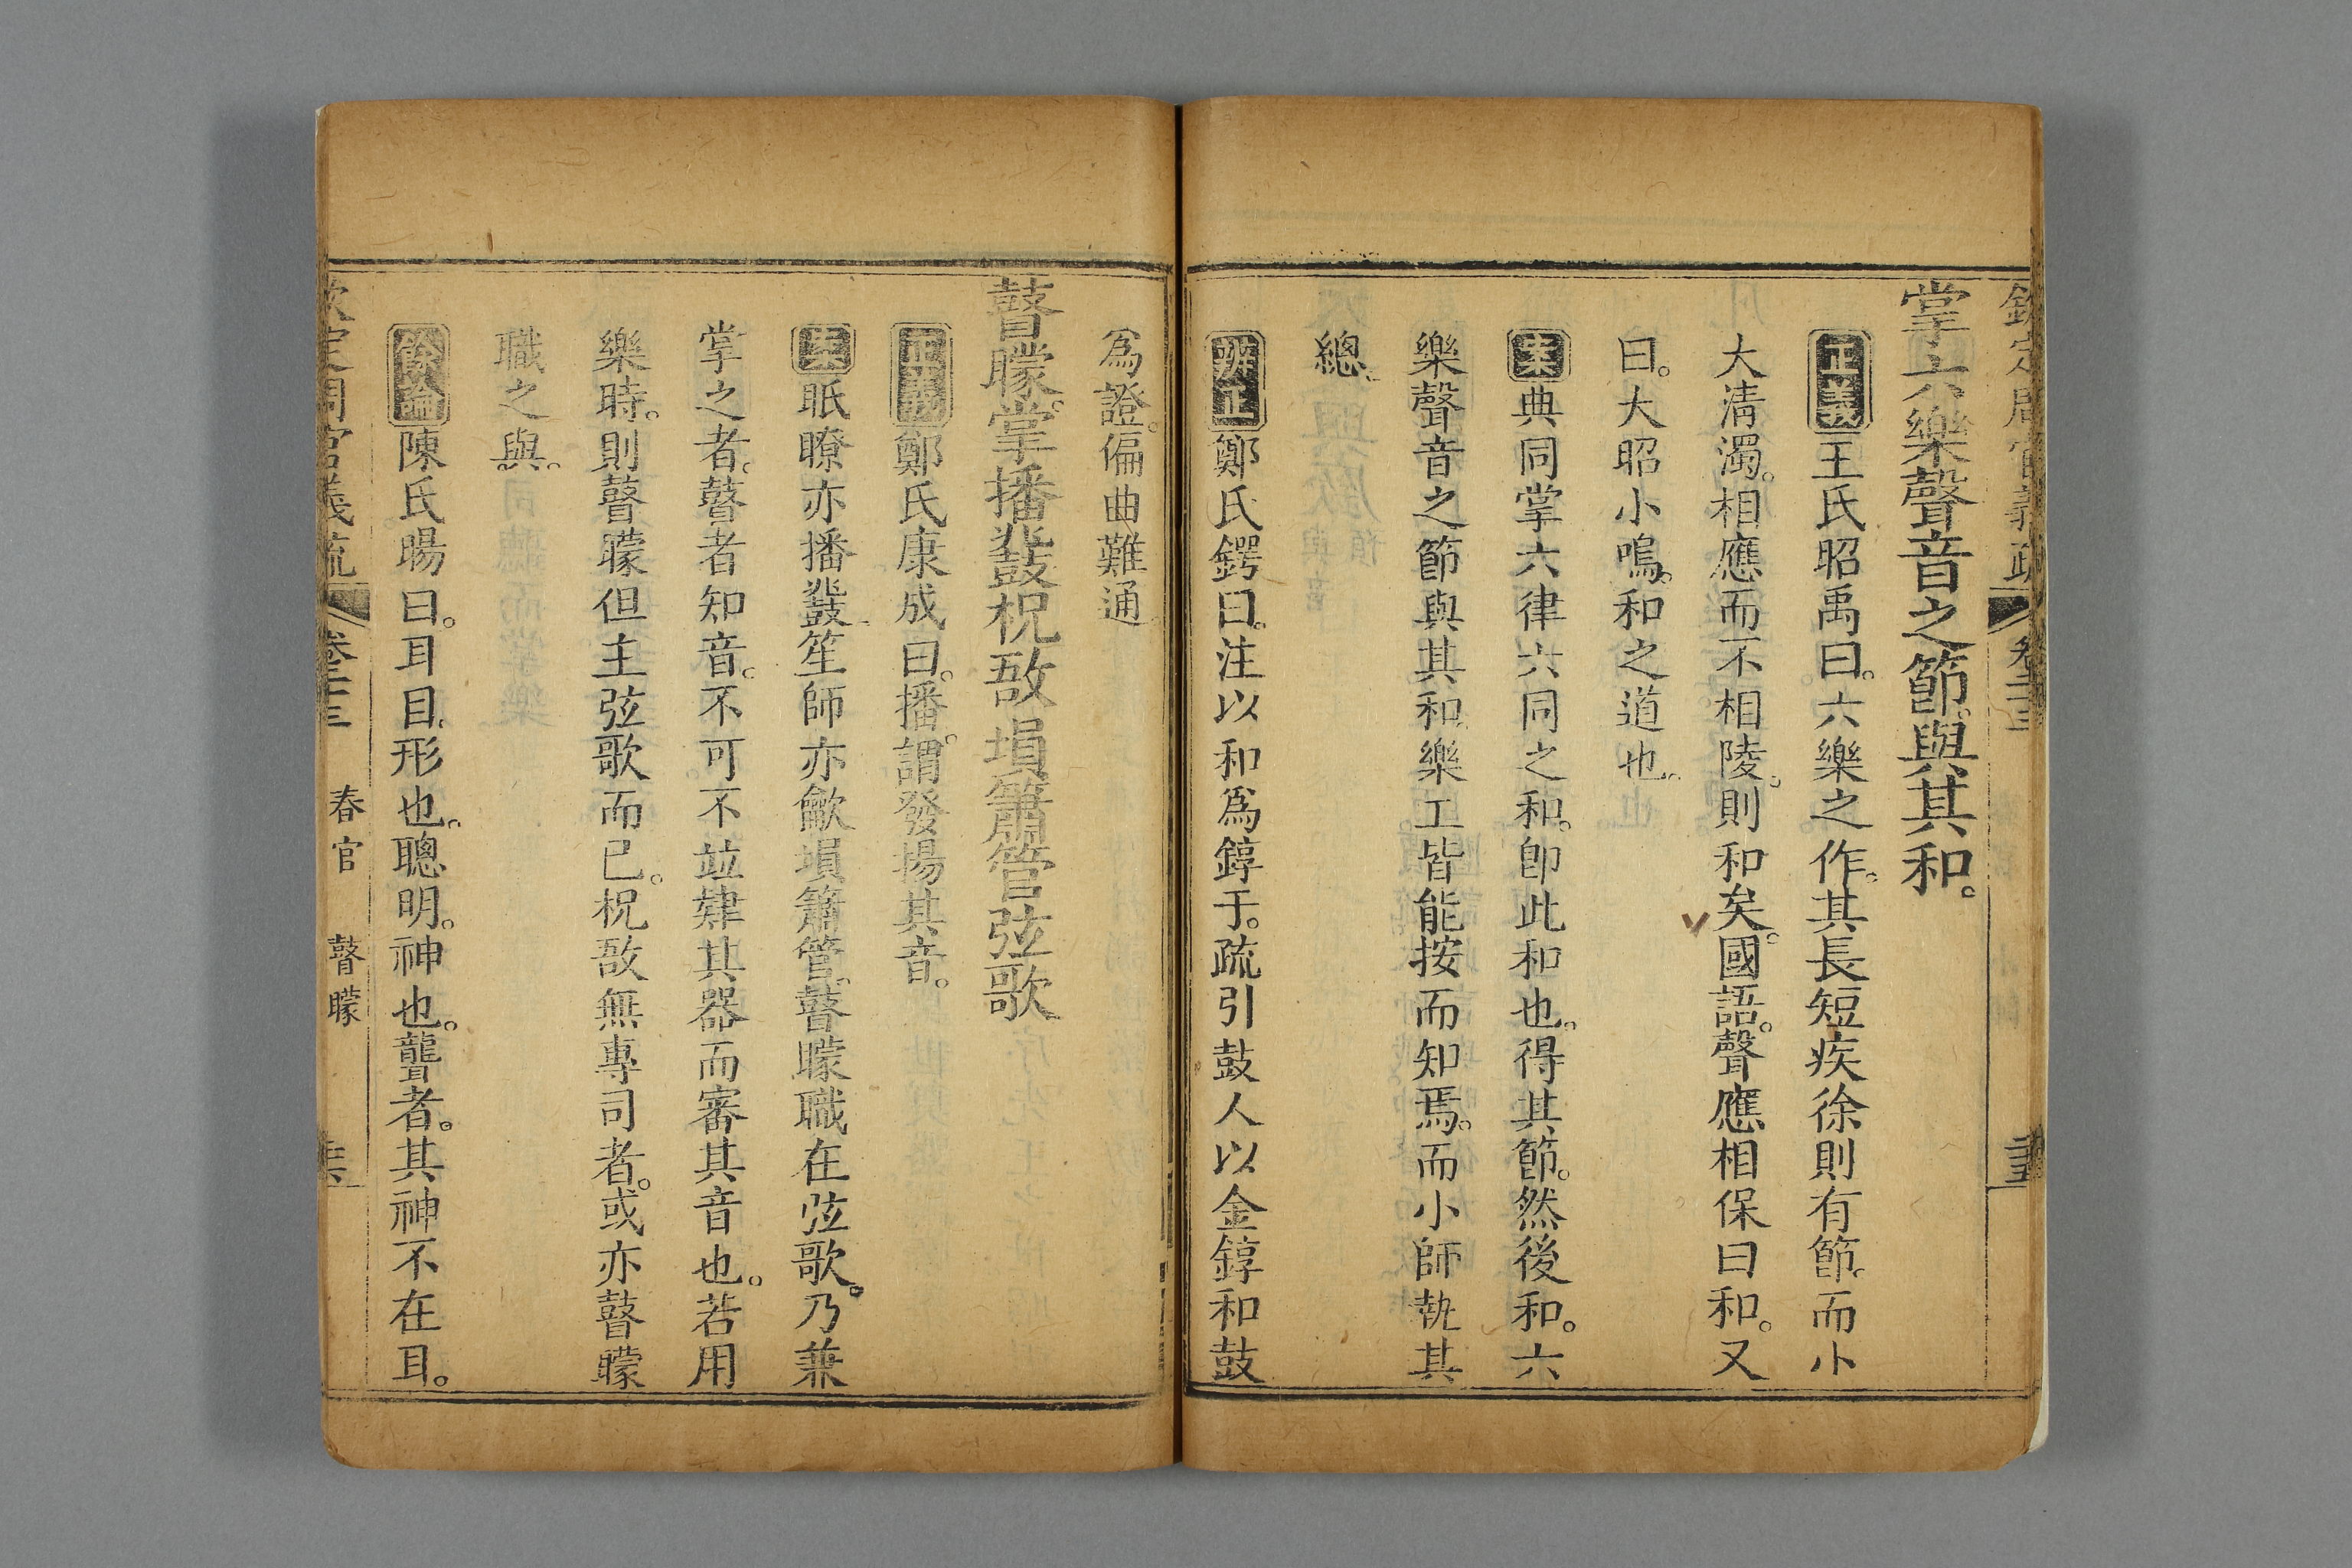 掌六樂聲音之節與其和。
正義王氏昭禹曰。六樂之作。其長短疾徐則有節。而小
大清濁。相應而不相陵。則和矣。國語。聲應相保曰和。又
曰。大昭小鳴。和之道也。
案典同掌六律六同之和。卽此和也。得其節。然後和。六
樂聲音之節與其和。樂工皆能按而知焉。而小師執其
總。
辨正鄭氏鍔曰。注以和爲錞于。疏引鼓人以金錞和鼓
爲證。偏曲難通
瞽矇。掌播鼗鼓柷敔塤簫管弦歌。
正義鄭氏康成曰。播。謂發揚其音。
案眂瞭亦播鼗。笙師亦龡塤簫管。瞽矇職在弦歌。乃兼
掌之者。瞽者知音。不可不竝肄其器而審其音也。若用
樂時。則瞽矇但主弦歌而已。柷敔無專司者。或亦瞽矇
職之與。
餘論陳氏暘曰。耳目。形也。聰明。神也。聾者。其神不在耳。
欽定周官義疏 卷二十三 春官 瞽矇